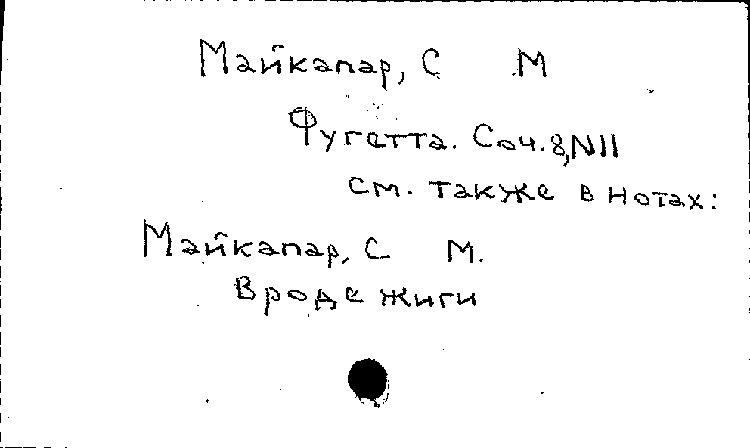 Майкапар, С М
Фугетта. Соч. 8, N11
см. также в нотах:
Майкапар, С М.
Вроде жиги